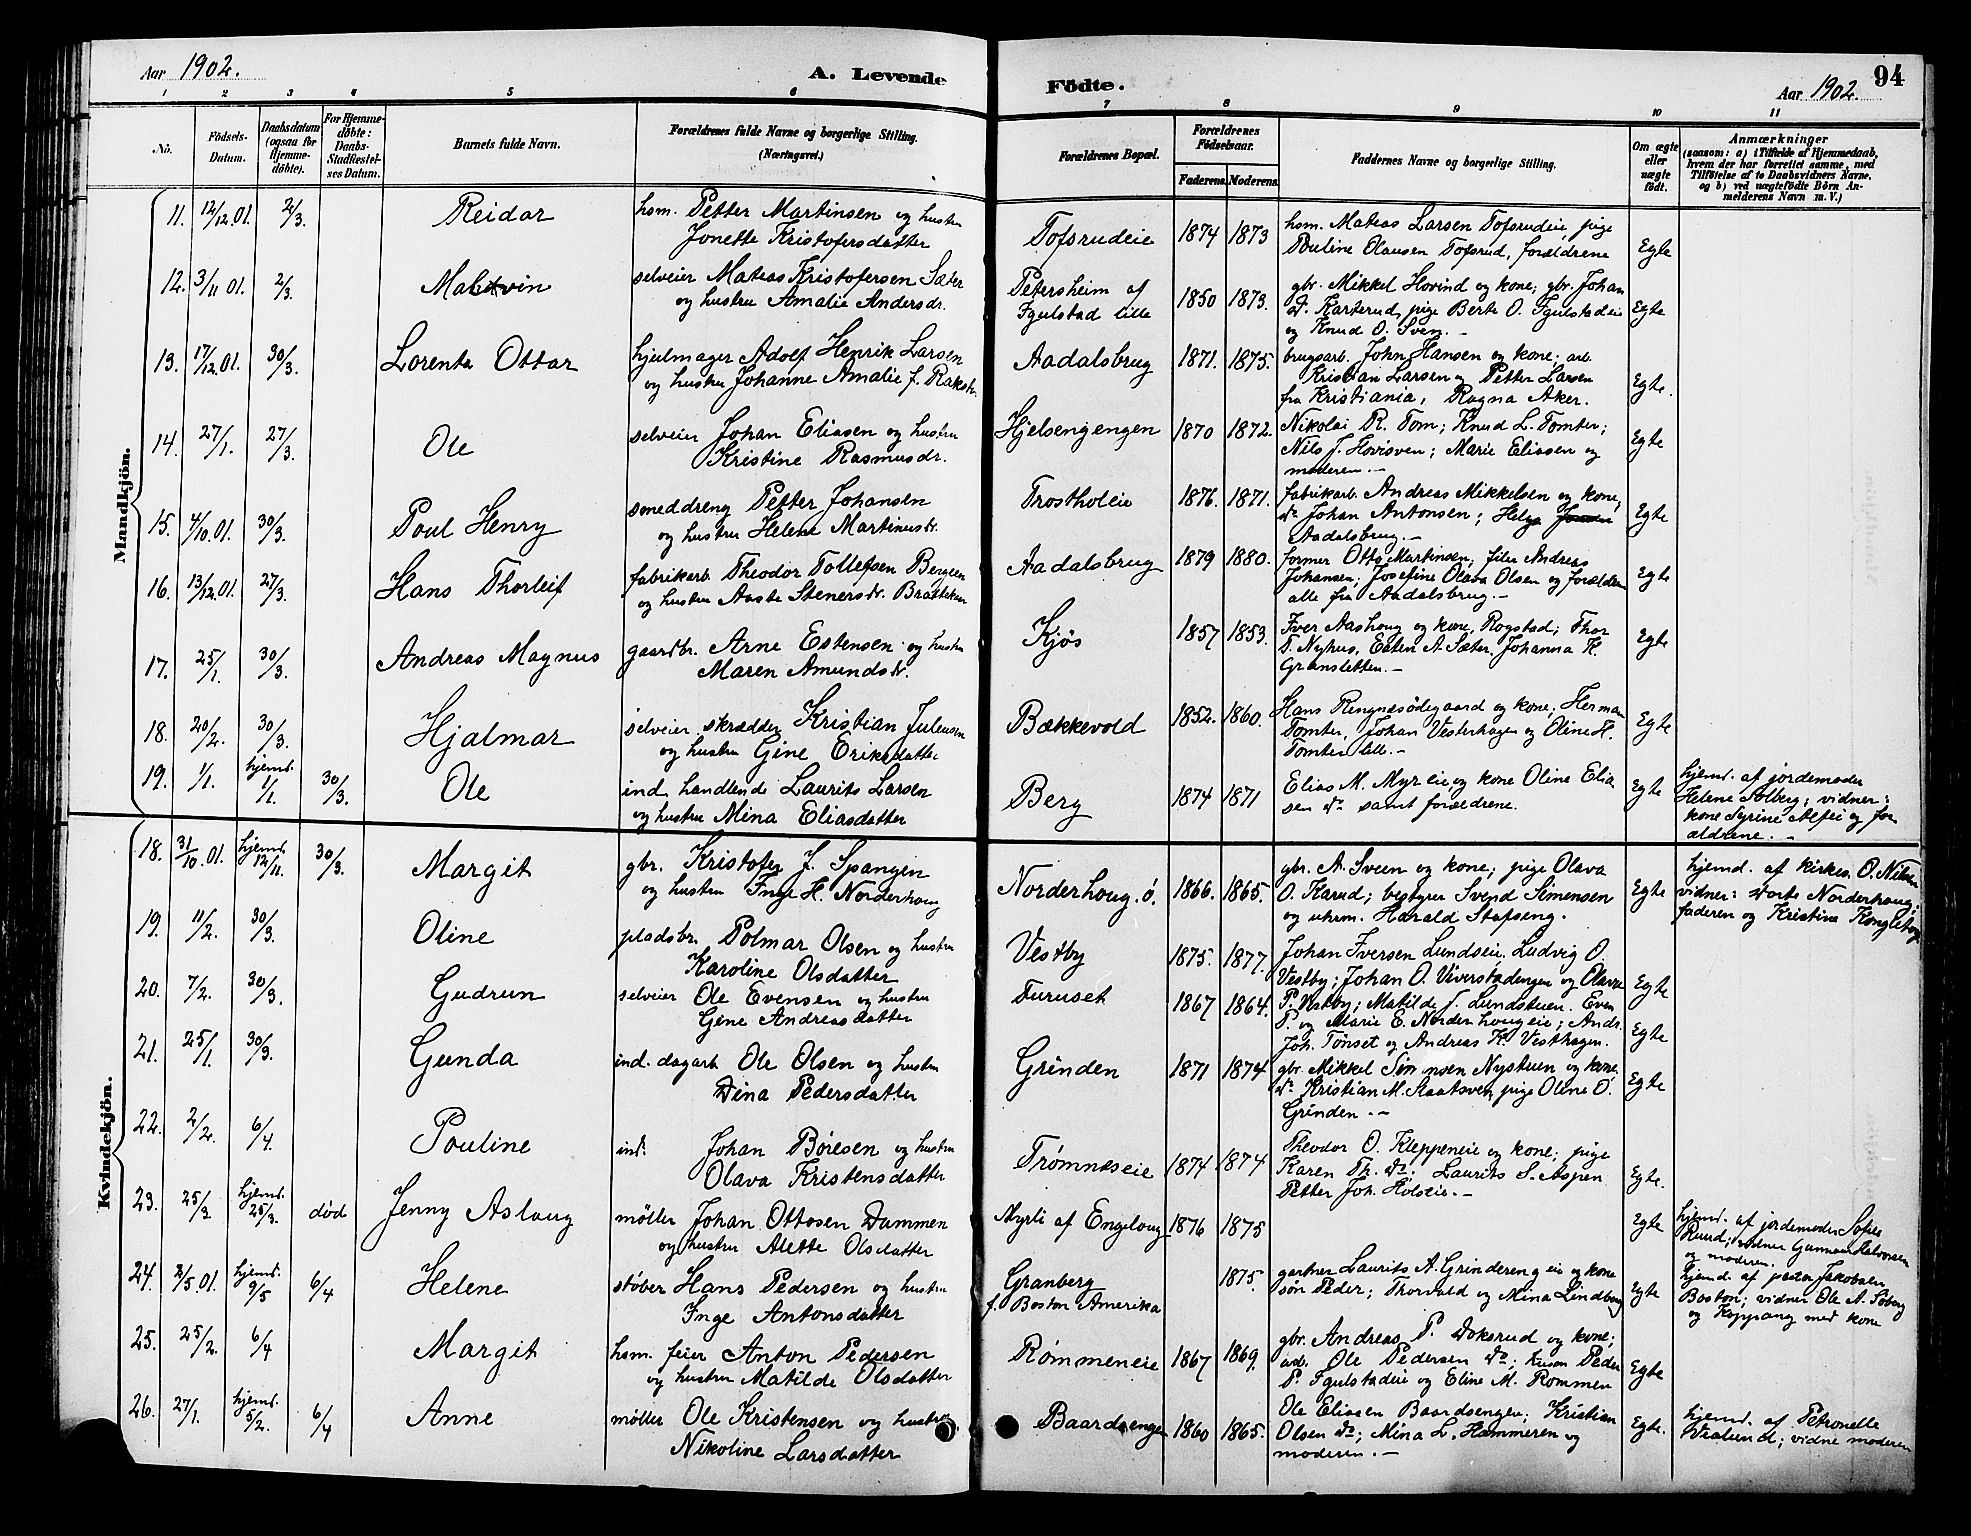 Aar 1902.
A. Levende
1 2 3 4 5 6
No.
Födsels-Datum.
Daabsdatum (ogsaa for Hjemme-döbte).
For Hjemme-döbte: Daabs-Stadfæstel-ses Datum.
Barnets fulde Navn.
Forældrenes fulde Navne og borgerlige Stilling. (Næringsvei.)
Mandkjön.
11. 12/12.01. 2/3. Reidar hsm. Petter Martinsen og hustru
Jonette Kristofersdatter
12. 3/11 01. 2/3. selveier Mateas Kristofersen Sæter
og hustru Amalie Andersdr.
13. 17/12.01. 30/3. Lorentz Ottar hjulmager Adolf Henrik Larsen
og hustru Johanne Amalie f.
14. 27/1. 27/3. Ole selveier Johan Eliasen og hustru
Kristine Rasmusdr.
15. 4/10.01. 30/3. Poul Henry smeddreng Petter Johansen
og hustru Helene Martinusdr.
16. 13/12.01. 27/3. Hans Thorleif fabrikarb. Theodor Tollefsen Bergeen
og hustru Aaste Stenersdr.
17. 25/1. 30/3. Andreas Magnus gaardbr. Arne Estensen og hustru
Maren Amundsdr.
18. 20/2. 30/3. Hjalmar selveier skrædder Kristian Julensen
og hustru Gine Eriksdatter
19. 1/1. hjemd. 1/1. 30/3. Ole ind. handlende Laurits Larsen
og hustru Mina Eliasdatter
Kvindekjön.
18. 31/10.01. hjemd. 12/11. 30/3. Margit gbr. Kristofer J. Spangen
og hustru Inge H. Norderhoug
19. 11/2. 30/3. Oline pladsbr. Polmar Olsen og hustru
Karoline Olsdatter
20. 7/2. 30/3. Gudrun selveier Ole Evensen og hustru
Gine Andreasdatter
21. 25/1. 30/3. Gunda ind. dagarb. Ole Olsen og hustru
Dina Pedersdatter
22. 2/2. 6/4. Pouline ind. Johan Böresen og hustru
Olava Kristensdatter
23. 25/3. hjemd. 25/3. död Jenny Aslaug möller Johan Ottosen Dammen
og hustru Alette Olsdatter
24. 2/5 01. hjemd. 9/5 6/4 Helene støber Hans Pedersen og hustru
Inge Antonsdatter
25. 25/2. 6/4 Margit hsm. feier Anton Pedersen
og hustru Matilde Olsdatter
26. 27/1. hjemd. 5/2. 6/4 Anne möller Ole Kristensen og hustru
Nikoline Larsdatter
94
Födte.
Aar 1902.
7 8 9 10 11
Forældrenes Bopæl.
Forældrenes Födselsaar.
Faderens. Moderens.
Faddernes Navne og borgerlige Stilling.
Om ægte eller uægte födt.
Anmærkninger
(saasom: a) i Tilfælde af Hjemmedaab,
hvem der har forrettet samme, med
Tilföielse af to Daabsvidners Navne,
og b) ved uægtefödte Börn An-
melderens Navn m. V.)
Tofsrudeie 1874 1873 hsm. Mateas Larsen Tofsrudeie, pige
Pouline Olausen Tofsrud, forældrene Egte
Petersheim af
Igulstad lille 1850 1873. gbr. Mikkel Hovind og kone; gbr. Johan
Karterud, pige Berte O. Igulstadeie
og Knud O. Sven. Egte
Aadalsbrug 1871. 1875. brugsarb. John Hansen og kone; arb.
Kristian Larsen og Petter Larsen
fra Kristiania, Ragna Aker. Egte.
Hjelsengengen 1870 1872. Nikolai R. Tom; Knud L. Tomter;
Nils J. Hovisven; Marie Eliasen og
moderen. Egte
Trostholeie 1876. 1871. fabrikarb. Andreas Mikkelsen og kone;
do Johan Antonsen; Helga
Aadalsbrug. Egte
Aadalsbrug 1879 1880. former Otto Martinsen; filer Andreas
Johansen; Josefine Olava Olsen og forældrene
alle fra Aadalsbrug. Egte
Kjös 1857 1853. Iver Aashoug og kone, Rogstad; Thor
T. Nyhus, Esten A. Sæter, Johanna H.
Gransletten. Egte
Bækkevold 1852. 1860. Hans Ringnæsödegaard og kone; Herman
Tomter, Johan Vesterhagen og Oline H.
Tomter lille. Egte
Berg 1874 1871 Elias M. Myreie og kone Oline Elia-
sen do samt forældrene. Egte hjemd. af jordemoder
Helene Solberg; vidner:
kone Syrine og for-
ældrene.
Norderhoug. ö. 1866. 1865. gbr. A. Sveen og kone; pige Olava
O. Karud; bestyrer Svend Simensen
og uhrm. Harald Stafseng. Egte hjemd. af kirkes. O. Nilsen
vidner: Dorte Norderhoug;
faderen og Kristine
Vestby 1875. 1877. Johan Iversen Lundseie, Ludvig O.
Vestby; Johan O. Viverstadengen og Olava
P. Vestby; Matilde J. Lundstuen. Egte
Furuset 1867 1864. Even
P. og Marie E. Norderhougeie; Andr.
Joh. Tönset og Andreas H. Vesthagen. Egte
Grinden 1871 1874 gbr. Mikkel Simensen Nystuen og kone
do Kristian M. Staatsven, pige Oline O.
Grinden. Egte
Trömnæseie 1874 1874 Theodor O. Kleppeneie og kone; pige
Karen Th. do Laurits S. Aspen
Petter Joh. Holseie. Egte.
Myrli af Engeloug 1876 1875 Egte hjemd. af jordemoder Sofie
Ruud; vidner Gunnar Halvorsen
og moderen.
Granberg
f. Boston Amerika 1875. gartner Laurits A. Grinderengeie og kone
sön Peder; Thorvald og Mina Lindberg Egte hjemd. af pastor Jakobsen
Boston; vidner Ole A. Söberg
og Koppang med kone
Römmeneie 1867 1869. gbr. Andreas P. Doksrud og kone;
arb. Ole Pedersen do; husm Peder
P. Igulstadeie og Eline M. Rommen Egte
Baardsengen 1860 1865. Ole Eliasen Baardsengen; Kristian
Olsen do; Mina L. Hammeren og
moderen. Egte. hjemd. af Petronelle
vidne moderen